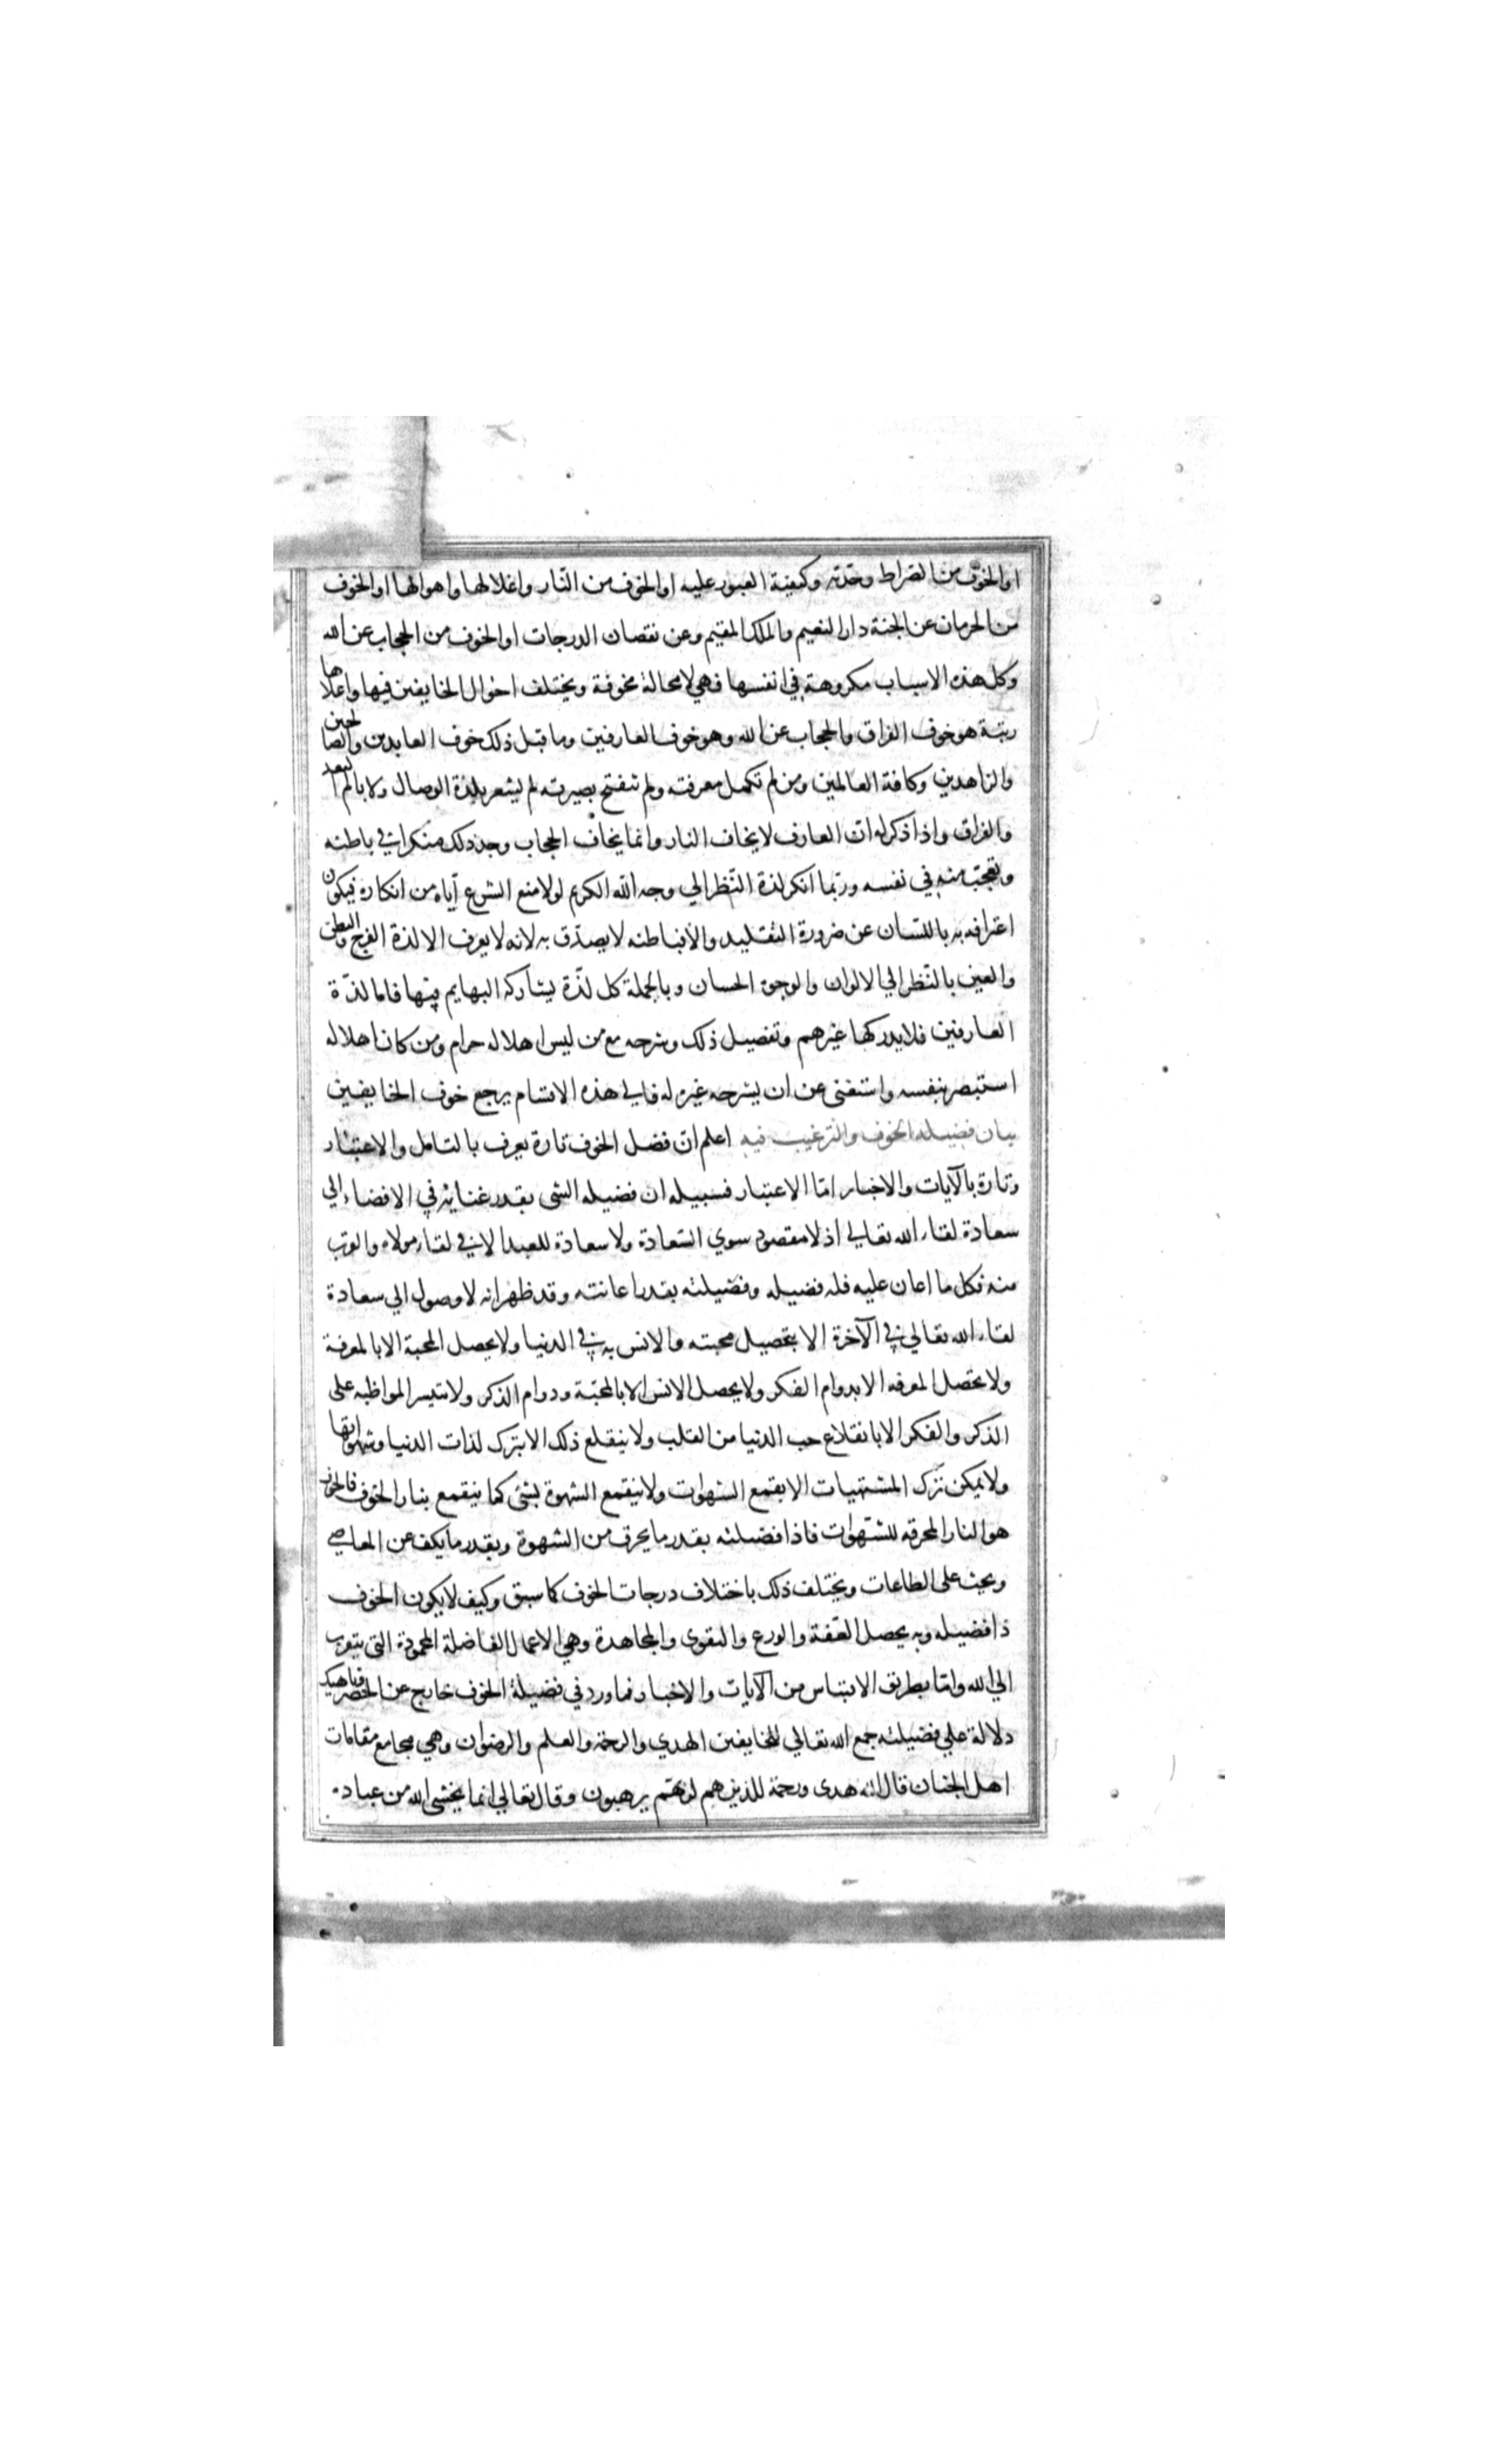 او الخوف من الصراط وحدته وكيفية العبور عليه او الخوف من النّار واغلالها واهوالها او الخوف
من الحرمان عن الجنة دار النعيم والملك المقيم وعن نقصان الدرجات او الخوف من الحجاب عن الله
وكل هذه الاسباب مكروهة في انفسها فهي لا محالة مخوفة ويختلف احوال الخايفين فيها واعلاها
رتبة هو خوف الفراق والحجاب عن الله وهو خوف العارفين وما قبل ذلك خوف العابدين والصالحين
والزاهدين وكافة العالمين ومن لم تكمل معرفته ولم تنفتح بصيرته لم يشعر بلذة الوصال ولا بالم البعد
والفراق واذا ذكر له ان العارف لا يخاف النار وانما يخاف الحجاب وجد ذلك منكرا في باطنه
وتعجّب منه في نفسه وربّما انكر لذة النّظر الي وجه الله الكريم لولا منع الشرع آياه من انكاره فيكون
اعترافه به باللسان عن ضرورة التقليد والا فباطنه لا يصدّق به لانه لا يعرف الا لذة الفرج والبطن
والعين بالنّظر الي الالوان والوجوه الحسان وبالجملة كل لذّة يشاركه البهايم فيها فاما لذّة
العارفين فلا يدركها غيرهم وتفصيل ذلك وشرحه مع من ليس اهلا له حرام ومن كان اهلا له
استبصر بنفسه واستغنى عن ان يشرحه غيره له فالي هذه الاقسام يرجع خوف الخايفين
بيان فضيله الخوف والترغيب فيه اعلم انّ فضل الخوف تارة يعرف بالتامل والاعتبار
وتارة بالآيات والاخبار امّا الاعتبار فسبيله ان فضيله الشى بقدر غنايه في الافضاء الي
سعادة لقاء الله تعالي اذ لا مقصود سوي السّعادة ولا سعادة للعبد الا في لقاء مولاه والقرب
منه فكل ما اعان عليه فله فضيله وفضيلته بقدر اعانته وقد ظهر انه لا وصول الي سعادة
لقاء الله تعالي في الآخرة الا بتحصيل محبته والانس به في الدنيا ولا يحصل المحبة الا بالمعرفة
ولا تحصل المعرفه الا بدوام الفكر ولا يحصل الانس الا بالمحبّة ودوام الذكر ولا تتيسر المواظبه على
الذكر والفكر الا بانقلاع حب الدنيا من القلب ولا ينقلع ذلك الا بترك لذات الدنيا وشهواتها
ولا يمكن ترك المشتهيات الا بقمع الشهوات ولا ينقمع الشهوة بشئ كما ينقمع بنار الخوف فالخوف
هو النار المحرقه للشهوات فاذا فضيلته بقدر ما يحرق من الشهوة وبقدر ما يكف عن المعاصي
ويحث على الطاعات ويختلف ذلك باختلاف درجات الخوف كما سبق وكيف لا يكون الخوف
ذا فضيله وبه يحصل العفّة والورع والتقوى والمجاهدة وهي الاعمال الفاضلة المحمودة التي يتقرب
الي الله وامّا بطريق الاقتباس من الآيات والاخبار فما ورد في فضيلة الخوف خارج عن الحصر فناهيك
دلالة علي فضيلته جمع الله تعالي للخايفين الهدي والرحمة والعلم والرضوان وهي مجامع مقامات
اهل الجنان قال الله هدى ورحمة للذين هم لربّهم يرهبون وقال تعالي انما يخشى الله من عباده